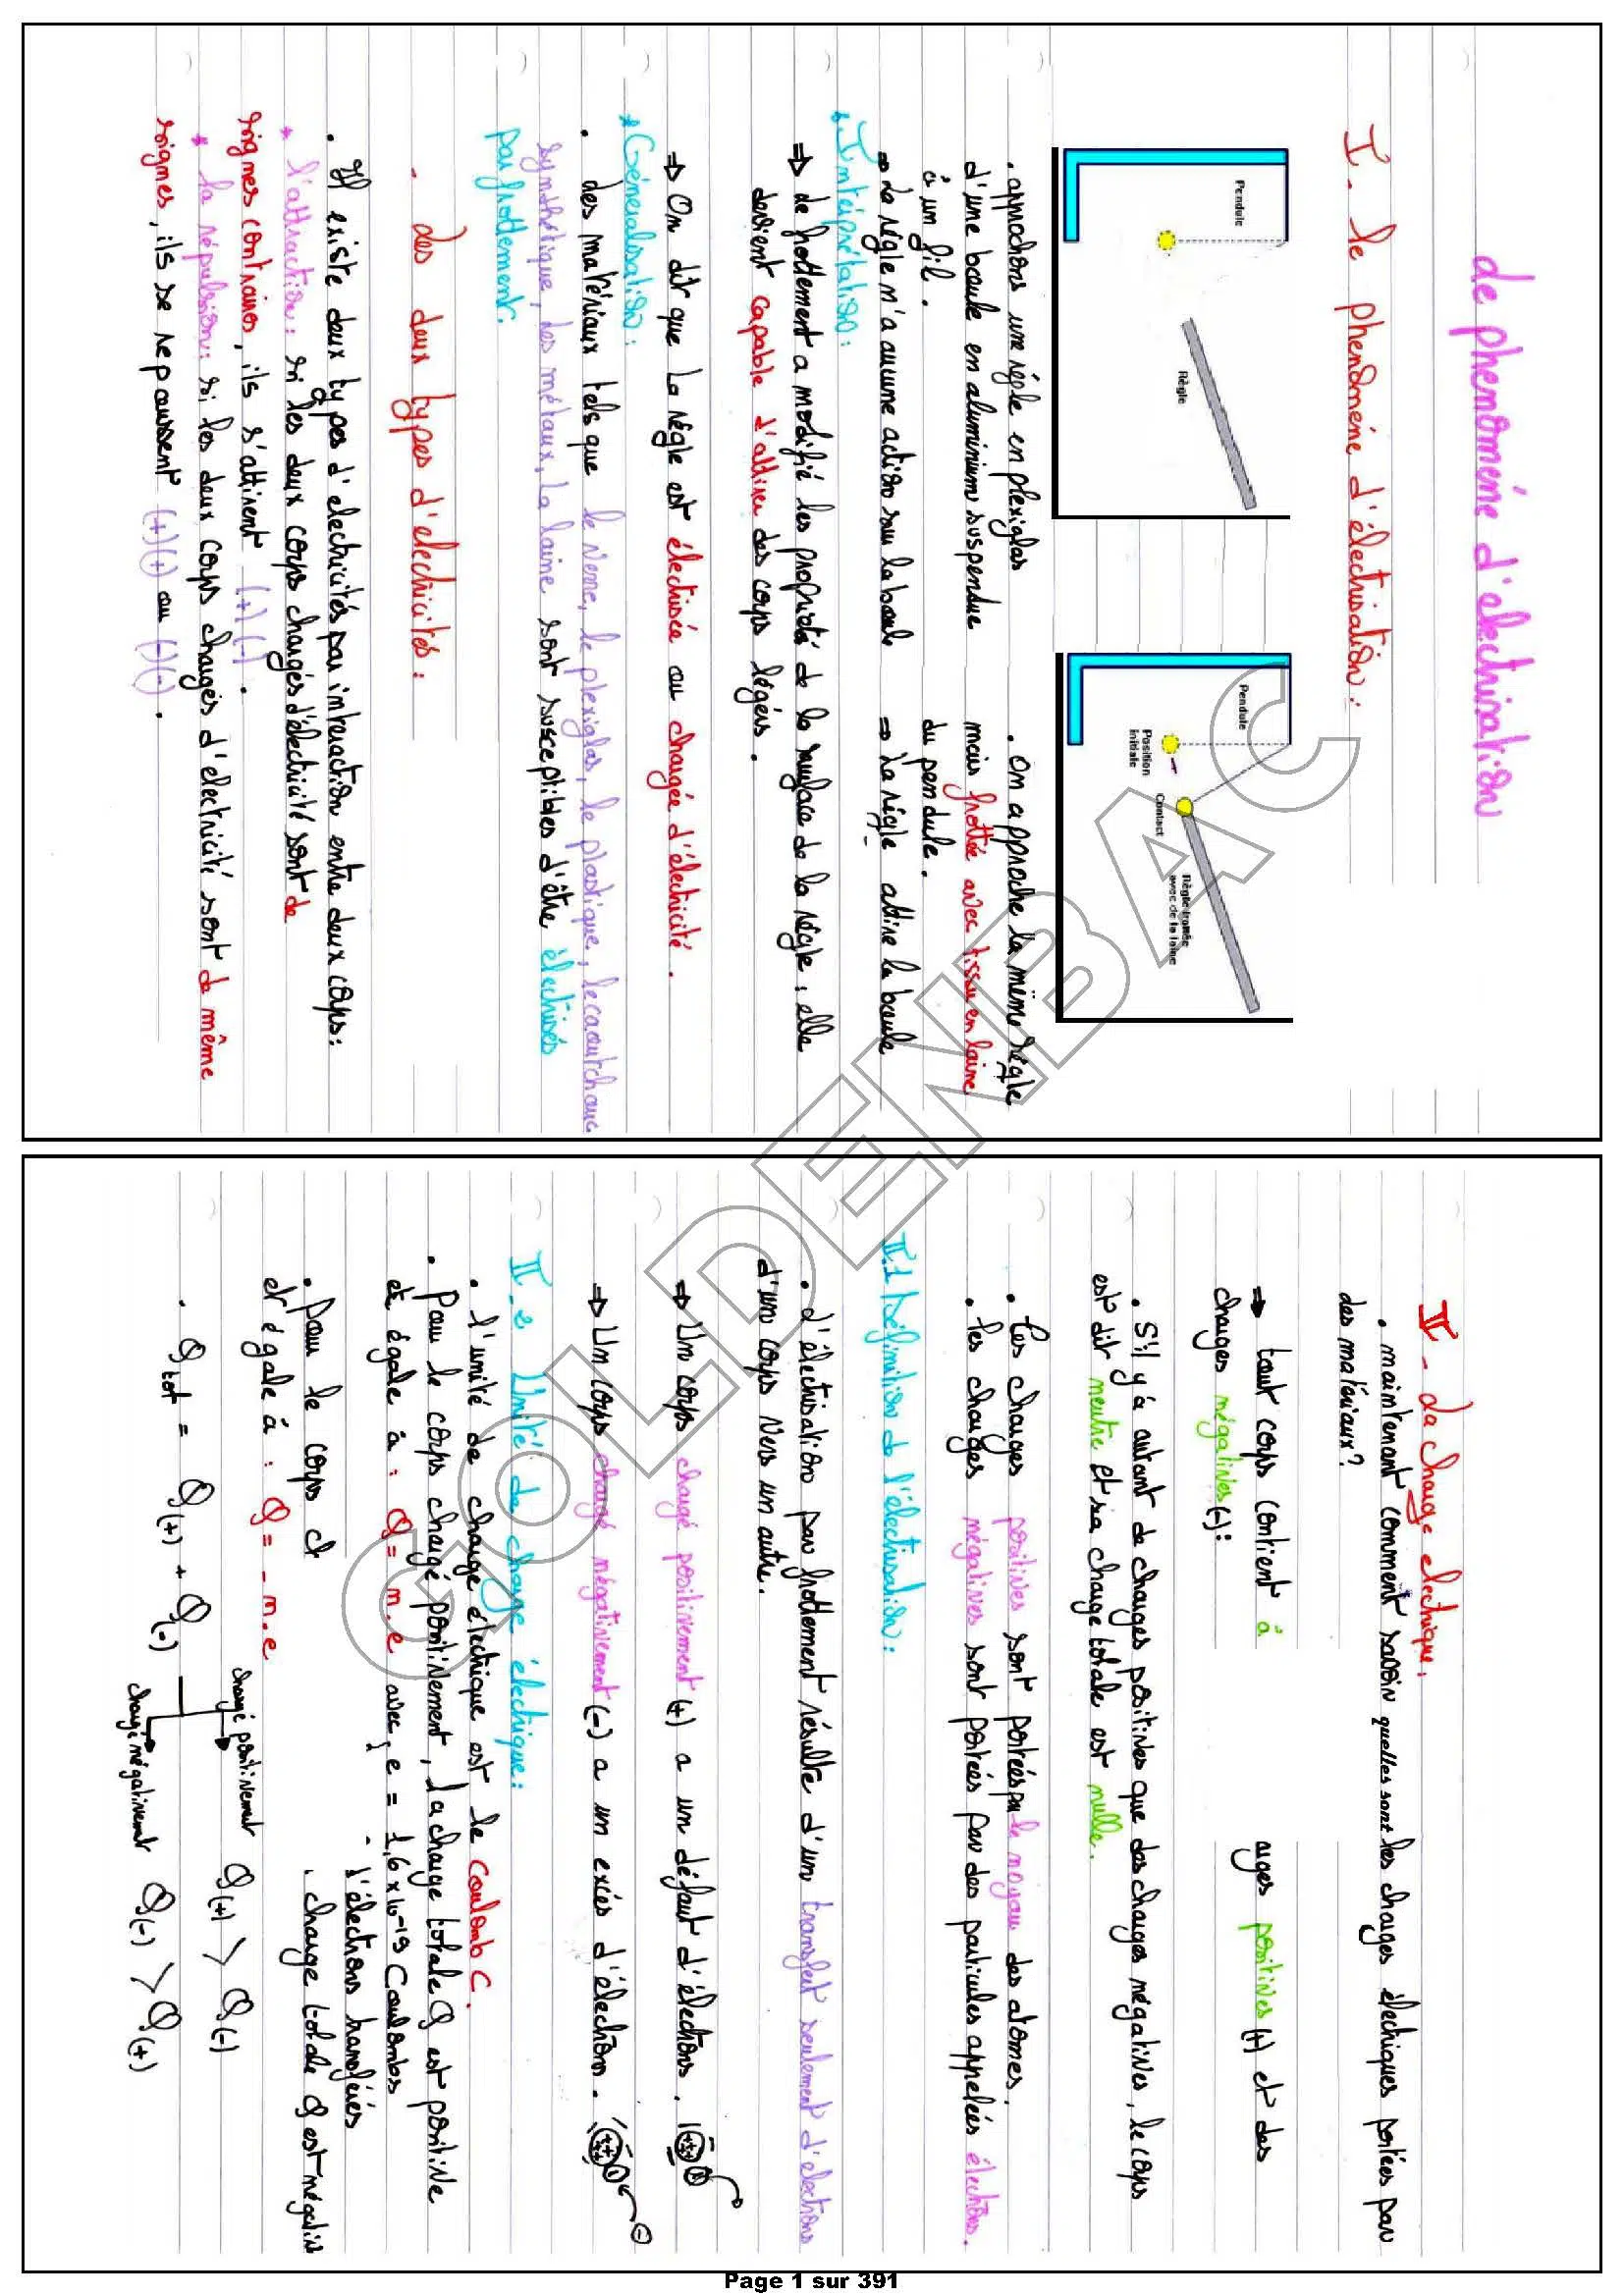 Le phénoméne d'électrisation
I. le phénoméne d'électrisation:
Pendule
Règle
Pendule
Position
initiale
Contact
Règle frottée
avec de la laine
. approchons une régle en plexiglas
d'une boule en aluminium suspendue
à un fil.
⇒ La régle n'a aucune action sur la boule
. On approche la même régle
mais frottée avec tissu en laine
du pendule.
⇒ La régle attire la boule
* Interprétation:
⇒ Le frottement a modifié les propriétés de la surface de la régle, elle
devient capable d'attirer des corps légers.
⇒ On dit que la régle est électrisée ou chargée d'électricité.
* Généralisation:
. des matériaux tels que le verre, le plexiglas, le plastique, le caoutchouc
synthétique, les métaux, la laine sont susceptibles d'être électrisés
par frottement.
. les deux types d'électricités:
. Il existe deux types d'electricités par interaction entre deux corps:
* l'attraction: si les deux corps chargés d'électricité sont de
signes contraires, ils s'attirent (+)(-).
* la répulsion: si les deux corps chargés d'electricité sont de même
signes, ils se repoussent (+)(+) ou (-)(-).
II - La charge electrique.
. maintenant comment savoir quelles sont les charges électriques portées par
des matériaux?
→ tout corps contient à
arges positives (+) et des
charges négatives (-):
. S'il y'a autant de charges positives que des charges négatives, le corps
est dit neutre et sa charge totale est nulle.
. Les charges positives sont portées par le noyau des atomes.
. les charges négatives sont portées par des particules appelées électrons.
II.1 Définition de l'électrisation:
. L'électrisation par frottement résulte d'un transfert seulement d'electrons
d'un corps vers un autre.
⇒ Un corps chargé positivement (+) a un défaut d'électrons.
⇒ Un corps chargé négativement (-) a un excés d'électron.
II.2 Unité de charge électrique:
. L'unité de charge électrique est le coulomb C.
. Pour le corps chargé positivement, la charge totale Q est positive
et égale à : Q = n.e avec, e = 1,6 x 10⁻¹⁹ Coulombs
l'électrons transférés
. Pour le corps c
. charge totale Q est négative
et égale à : Q = - n.e
. Q tot = Q(+) + Q(-)
chargé positivement Q(+) > Q(-)
chargé négativement Q(-) > Q(+)
GOLDENBAC
Page 1 sur 391